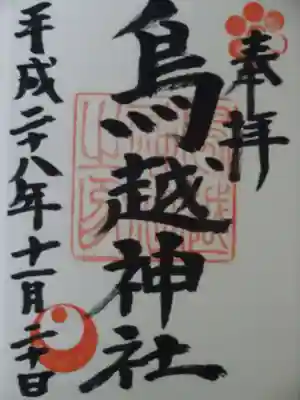 奉拝
鳥越神社
平成二十八年十一月二十日